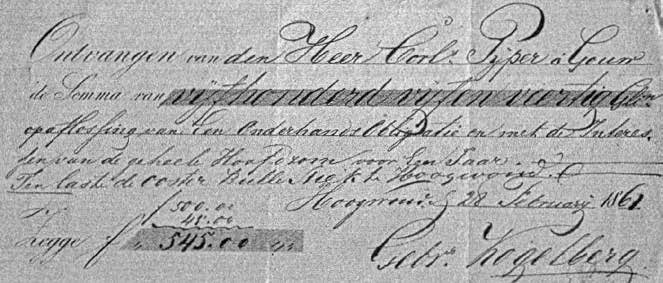 Ontvangen van den Heer Corls. Pijper à Gouw
de Somma van vijfhonderd vijf en veertig Gln
op aflossing van Een Onderhands Obligatie en met de Interes-
sen van de geheele Hoofdzom voor Een Jaar.
Ten laste de Ooster Bulle te Hoogwoud.
Hoogwoud 28 Februarij 1861
500.00
45.00
Zegge f 545.00
Gebrs. Kogelberg